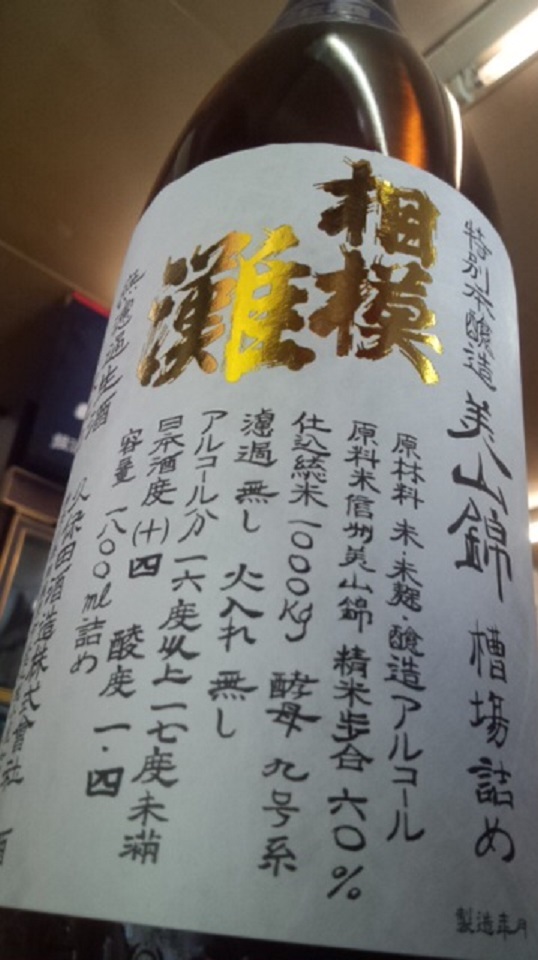 特別本醸造 美山錦 槽場詰め
相模
灘
原材料 米・米麹・醸造アルコール
原料米信州美山錦 精米歩合 六〇%
仕込総米一〇〇〇Kg 酵母 九号系
濾過 無し 火入れ 無し
アルコール分 一六度以上一七度未満
日本酒度(十)四 酸度 一・四
容量 一八〇〇ml詰め
無濾過生酒
久保田酒造株式會社
製造年月